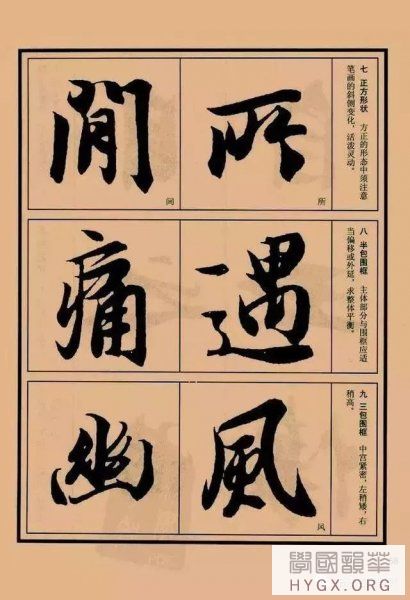 七 正方形状 方正的形态中须注意
笔画的斜侧变化，活泼灵动。
所
所
間
间
八 半包围框 主体部分与围框应适
当偏移或外延，求整体平衡。
遇
痛
九 三包围框 中宫紧密，左稍矮，右
稍高。
風
风
幽
華韻國學
HYGX.ORG